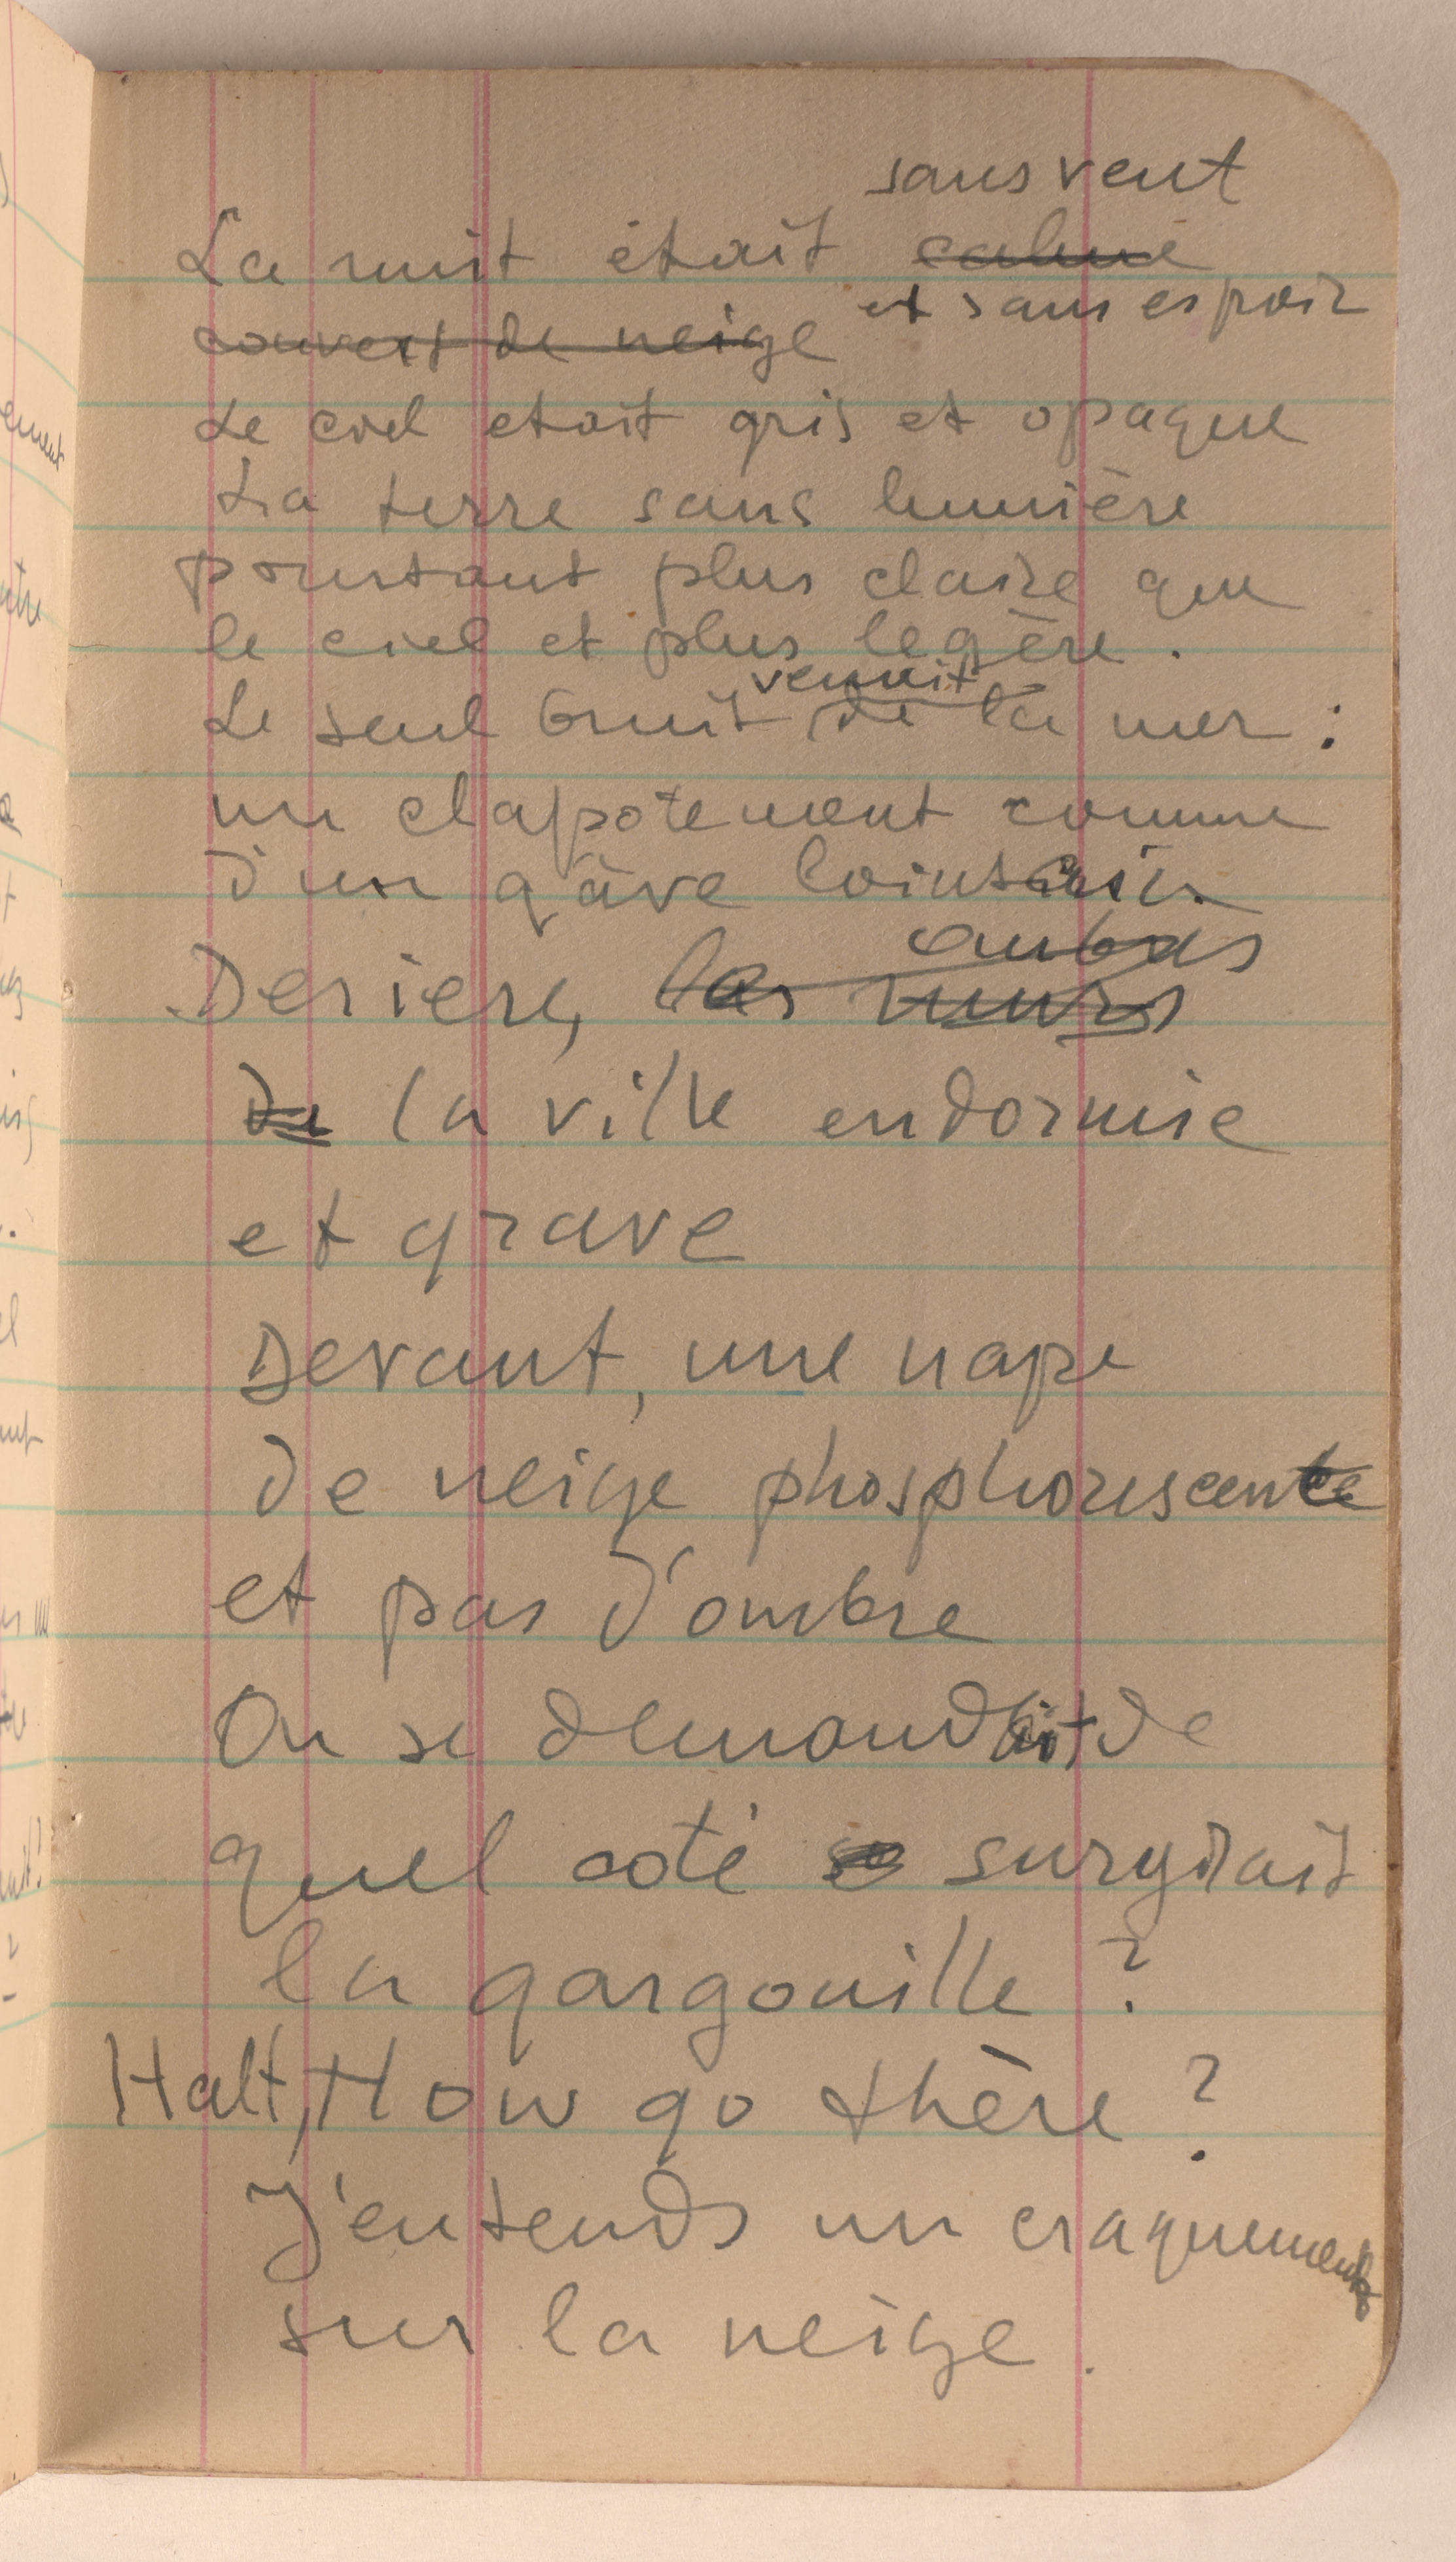 sans vent
La nuit était calme
et sans espoir
couvert de neige
Le ciel etait gris et opaque
La terre sans lumière
pourtant plus claire que
le ciel et plus legère.
venait
Le seul bruit de la mer :
un clapotement comme
d'un gâve lointain
Deriere, les murs
de la ville endormie
et grave
Devant, une nape
de neige phosphorescente
et pas d'ombre
On se demandait de
quel coté surgirait
la gargouille ?
Halt, How go thère ?
J'entends un craquement
sur la neige.